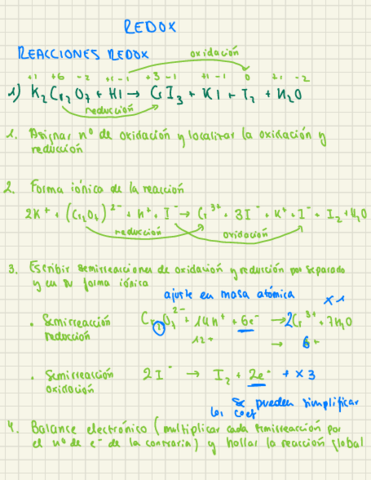 REDOX
REACCIONES REDOX oxidación
+1 +6 -2 +1 -1 +3 -1 +1 -1 0 +1 -2
1) K2Cr2O7 + HI → CrI3 + KI + I2 + H2O
reducción
1. Asignar nº de oxidación y localizar la oxidación y
reducción
2. Forma iónica de la reacción
2K+ + (Cr2O7)2- + H+ + I- → Cr3+ + 3I- + K+ + I- + I2 + H2O
reducción oxidación
3. Escribir semirreacciones de oxidación y reducción por separado
y en su forma iónica
ajuste en masa atómica x1
• Semirreacción Cr2O7 2- + 14H+ + 6e- → 2Cr3+ + 7H2O
reducción 12+ → 6+
• Semirreacción 2I- → I2 + 2e- + x3
oxidación
se pueden simplificar
los coef
4. Balance electrónico (multiplicar cada semirreacción por
el nº de e- de la contraria) y hallar la reacción global